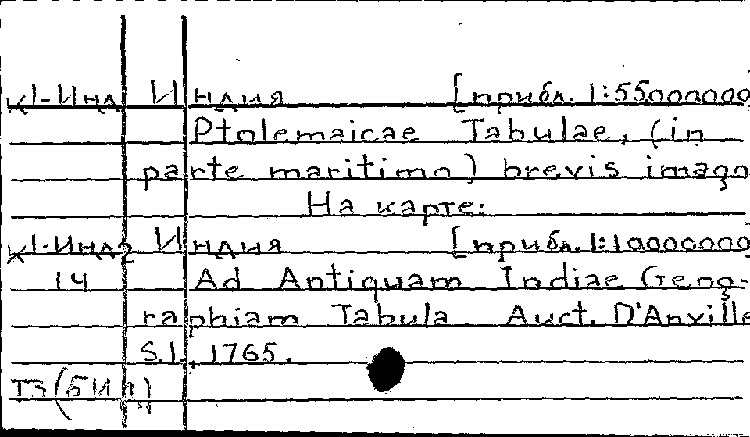 К1-Инд Индия [прибл. 1:55000000
Ptolemaicae Tabulae, (in
parte maritimo) brevis imago
На карте:
К1-Инд2 Индия [прибл. 1:10000000
14 Ad Antiquam Indiae Geog-
raphiam Tabula Auct. D'Anville
S.l., 1765.